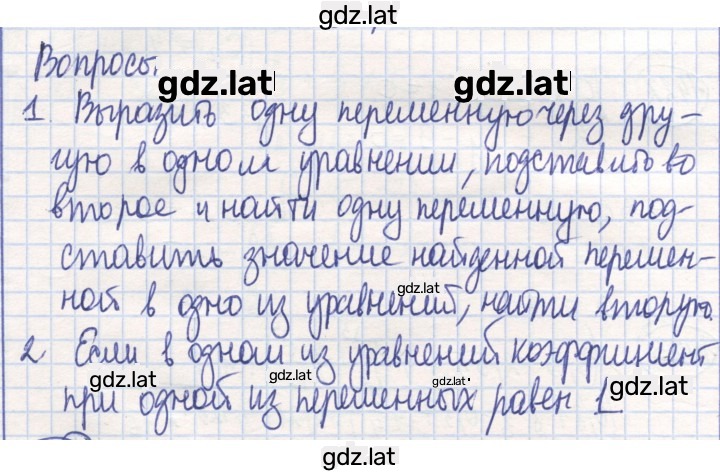 gdz.lat
Вопросы.
gdz.lat gdz.lat
1 Выразить одну переменную через дру-
гую в одном уравнении, подставить во
второе и найти одну переменную, под-
ставить значение найденной перемен-
gdz.lat
ной в одно из уравнений, найти вторую.
2 Если в одном из уравнений коэффициент
gdz.lat gdz.lat gdz.lat
при одной из переменных равен 1
gdz.lat